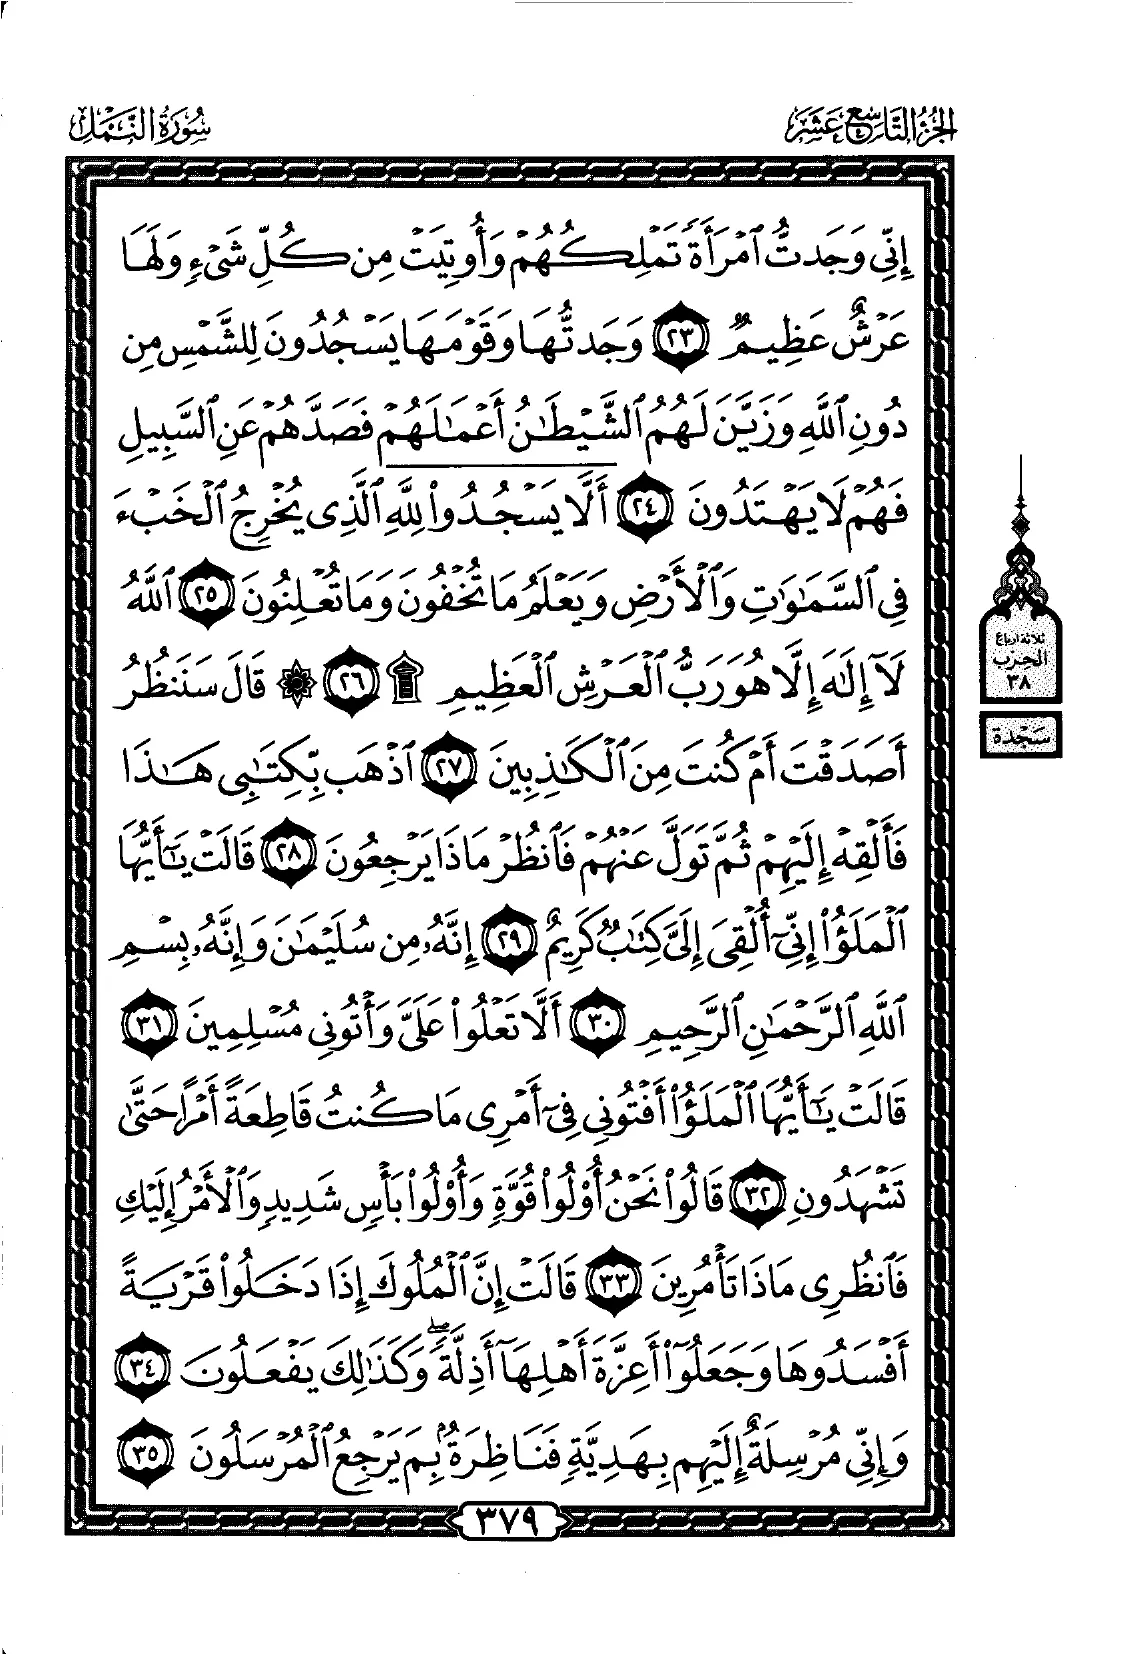 الجزء التاسع عشر
سورة النمل
إِنِّي وَجَدتُّ ٱمْرَأَةً تَمْلِكُهُمْ وَأُوتِيَتْ مِن كُلِّ شَىْءٍ وَلَهَا
عَرْشٌ عَظِيمٌ ٢٣ وَجَدتُّهَا وَقَوْمَهَا يَسْجُدُونَ لِلشَّمْسِ مِن
دُونِ ٱللَّهِ وَزَيَّنَ لَهُمُ ٱلشَّيْطَـٰنُ أَعْمَـٰلَهُمْ فَصَدَّهُمْ عَنِ ٱلسَّبِيلِ
فَهُمْ لَا يَهْتَدُونَ ٢٤ أَلَّا يَسْجُدُوا۟ لِلَّهِ ٱلَّذِى يُخْرِجُ ٱلْخَبْءَ
فِى ٱلسَّمَـٰوَٰتِ وَٱلْأَرْضِ وَيَعْلَمُ مَا تُخْفُونَ وَمَا تُعْلِنُونَ ٢٥ ٱللَّهُ
لَآ إِلَـٰهَ إِلَّا هُوَ رَبُّ ٱلْعَرْشِ ٱلْعَظِيمِ ۩ ٢٦ ۞ قَالَ سَنَنظُرُ
أَصَدَقْتَ أَمْ كُنتَ مِنَ ٱلْكَـٰذِبِينَ ٢٧ ٱذْهَب بِّكِتَـٰبِى هَـٰذَا
فَأَلْقِهْ إِلَيْهِمْ ثُمَّ تَوَلَّ عَنْهُمْ فَٱنظُرْ مَاذَا يَرْجِعُونَ ٢٨ قَالَتْ يَـٰٓأَيُّهَا
ٱلْمَلَؤُا۟ إِنِّىٓ أُلْقِىَ إِلَىَّ كِتَـٰبٌ كَرِيمٌ ٢٩ إِنَّهُۥ مِن سُلَيْمَـٰنَ وَإِنَّهُۥ بِسْمِ
ٱللَّهِ ٱلرَّحْمَـٰنِ ٱلرَّحِيمِ ٣٠ أَلَّا تَعْلُوا۟ عَلَىَّ وَأْتُونِى مُسْلِمِينَ ٣١
قَالَتْ يَـٰٓأَيُّهَا ٱلْمَلَؤُا۟ أَفْتُونِى فِىٓ أَمْرِى مَا كُنتُ قَاطِعَةً أَمْرًا حَتَّىٰ
تَشْهَدُونِ ٣٢ قَالُوا۟ نَحْنُ أُو۟لُوا۟ قُوَّةٍ وَأُو۟لُوا۟ بَأْسٍ شَدِيدٍ وَٱلْأَمْرُ إِلَيْكِ
فَٱنظُرِى مَاذَا تَأْمُرِينَ ٣٣ قَالَتْ إِنَّ ٱلْمُلُوكَ إِذَا دَخَلُوا۟ قَرْيَةً
أَفْسَدُوهَا وَجَعَلُوٓا۟ أَعِزَّةَ أَهْلِهَآ أَذِلَّةً ۖ وَكَذَٰلِكَ يَفْعَلُونَ ٣٤
وَإِنِّى مُرْسِلَةٌ إِلَيْهِم بِهَدِيَّةٍ فَنَاظِرَةٌۢ بِمَ يَرْجِعُ ٱلْمُرْسَلُونَ ٣٥
٣٧٩
ثلاثة أرباع
الحزب
٣٨
سجدة